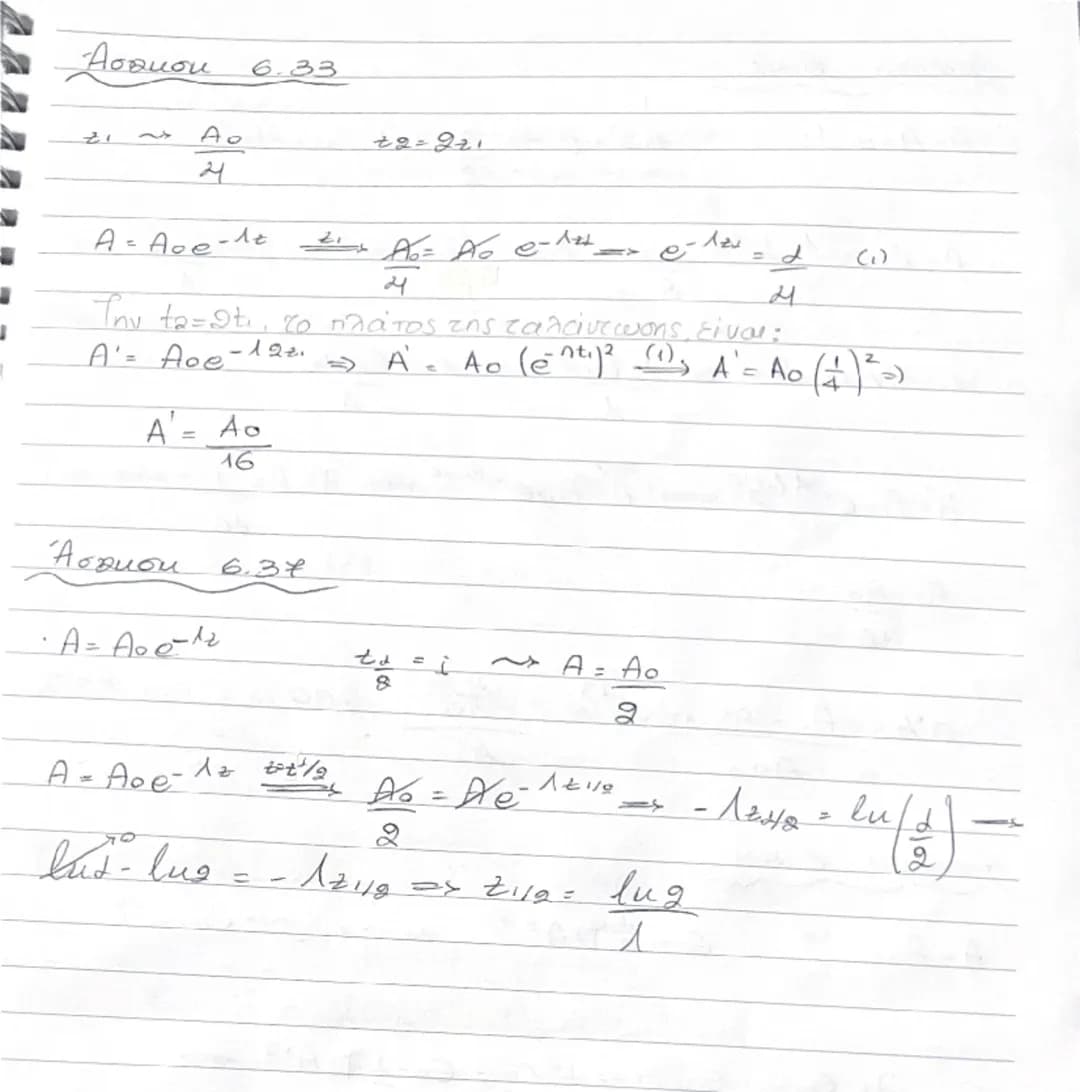 Άσκηση 6.33
t₁ ⇝ A₀/4 t₂ = 2t₁
A = A₀e^(-Λt) ⟹(t₁) A₀/4 = A₀ e^(-Λt₁) ⟹ e^(-Λt₁) = 1/4 (1)
Την t₂=2t₁, το πλάτος της ταλάντωσης είναι:
A' = A₀e^(-Λ2t₁) ⟹ A' = A₀ (e^(-Λt₁))² ⟹(1) A' = A₀ (1/4)² ⟹
A' = A₀/16
Άσκηση 6.37
· A = A₀e^(-Λt) ⇝ A = A₀/2
A = A₀e^(-Λt) ⟹(t=t1/2) A₀/2 = A₀e^(-Λt1/2) ⟹ -Λt1/2 = ln(1/2) ⟹
ln1 - ln2 = -Λt1/2 ⟹ t1/2 = ln2/Λ